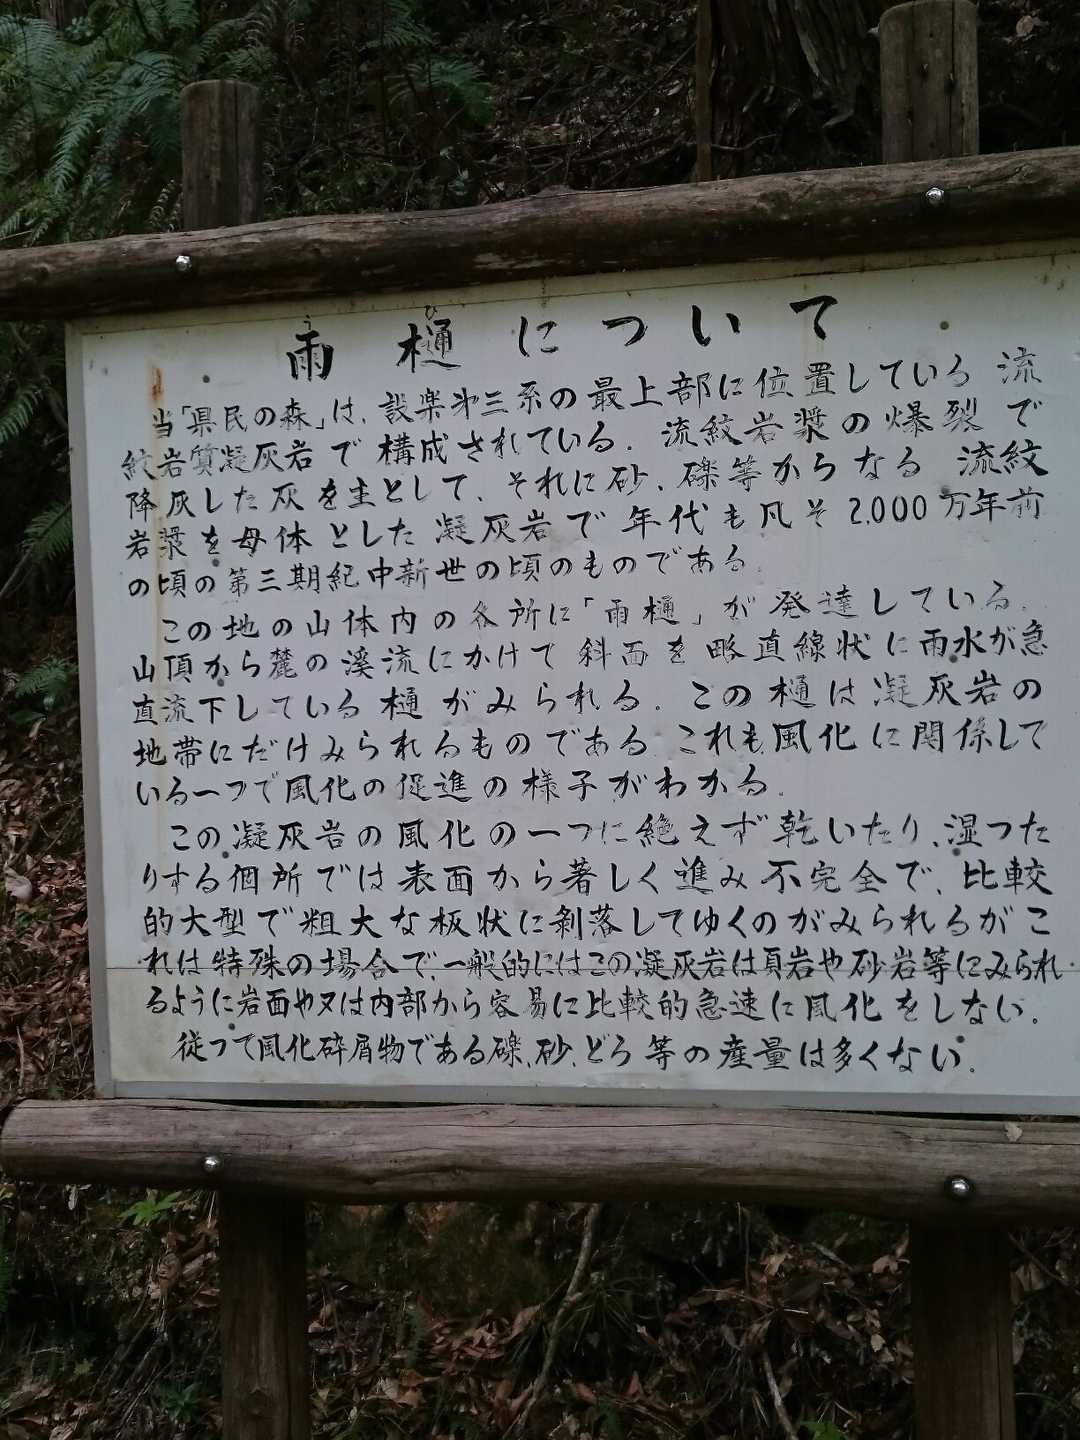 雨樋について
当「県民の森」は、設楽第三系の最上部に位置している流
紋岩質凝灰岩で構成されている。流紋岩漿の爆裂で
降灰した灰を主として、それに砂、礫等からなる流紋
岩漿を母体とした凝灰岩で年代も凡そ2,000万年前
の頃の第三期紀中新世の頃のものである。
この地の山体内の各所に「雨樋」が発達している。
山頂から麓の溪流にかけて斜面を略直線状に雨水が急
直流下している樋がみられる。この樋は凝灰岩の
地帯にだけみられるものである。これも風化に関係して
いる一つで風化の促進の様子がわかる。
この凝灰岩の風化の一つに絶えず乾いたり、湿つた
りする個所では表面から著しく進み不完全で、比較
的大型で粗大な板状に剝落してゆくのがみられるがこ
れは特殊の場合で、一般的にはこの凝灰岩は頁岩や砂岩等にみられ
るように岩面や又は内部から容易に比較的急速に風化をしない。
従つて風化砕屑物である礫、砂、どろ等の産量は多くない。